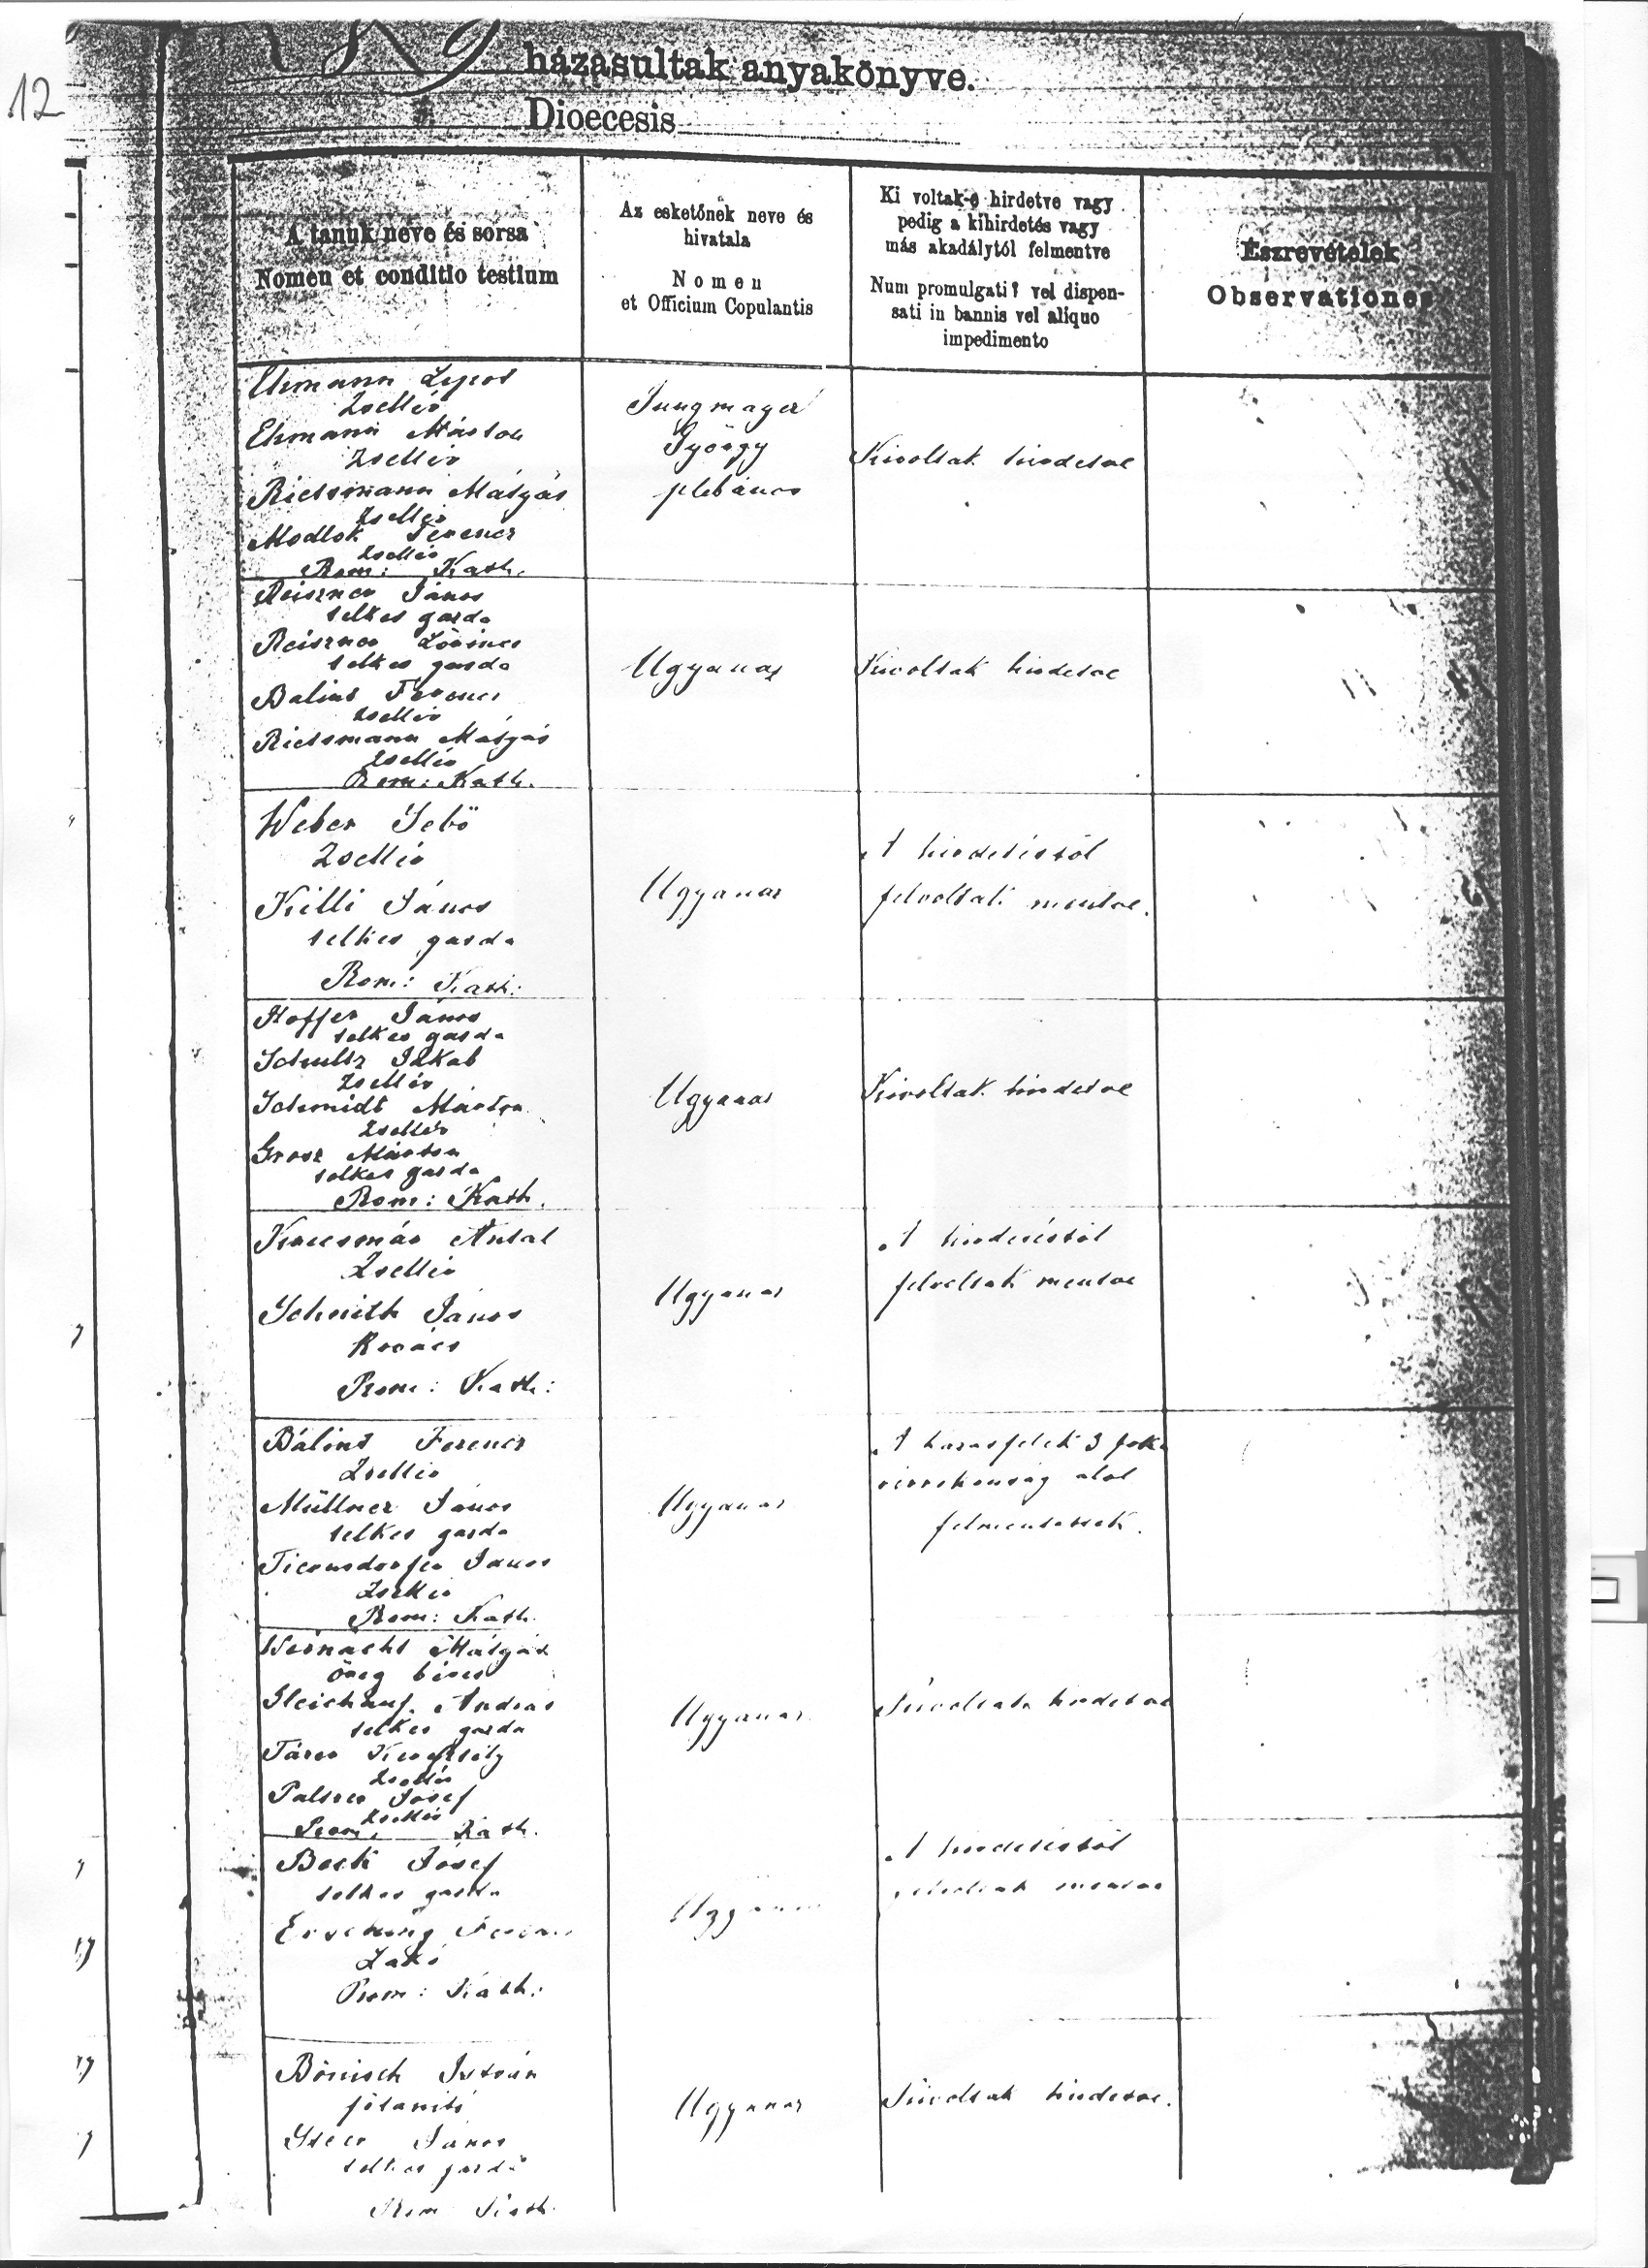 12
házasultak anyakönyve.
Dioecesis
A tanuk neve és sorsa
Nomen et conditio testium
Az esketőnek neve és
hivatala
Nomen
et Officium Copulantis
Ki voltak-e hirdetve vagy
pedig a kihirdetés vagy
más akadálytól felmentve
Num promulgati? vel dispen-
sati in bannis vel aliquo
impedimento
Észrevételek
Observationes
Ehmann
Zsellér
Ehmann Márton
Zsellér
Rietsmann Mátyás
Zsellér
Modlok Ferencz
Zsellér
Rom: Kath.
Jungmayer
György
plebános
Kivoltak hirdetve
Reiszner János
telkes gazda
Reiszner Lőrincz
telkes gazda
Balint Ferencz
Zsellér
Rietsmann Mátyás
Zsellér
Rom: Kath.
Ugyanaz
Kivoltak hirdetve
Weber Sebő
Zsellér
Killi János
telkes gazda
Rom: Kath:
Ugyanaz
A hirdetéstől
felvoltak mentve.
Hoffer János
telkes gazda
Schultz Jakab
Zsellér
Schmidt Márton
Zsellér
Grosz Márton
telkes gazda
Rom: Kath.
Ugyanaz
Kivoltak hirdetve
Antal
Zsellér
Schmith János
Kovács
Rom: Kath:
Ugyanaz
A hirdetéstől
felvoltak mentve
Bálint Ferencz
Zsellér
Müllner János
telkes gazda
János
Zsellér
Rom: Kath.
Ugyanaz
A házasfelek 3 foku
vérrokonság alol
felmentettek.
Mátyás
öreg béres
Gleichauf András
telkes gazda
Zsellér
József
Zsellér
Rom. Kath.
Ugyanaz
Kivoltak hirdetve
Beck József
telkes gazda
Lakó
Rom: Kath:
Ugyanaz
A hirdetéstől
felvoltak mentve
Bönisch István
főtanitó
János
telkes gazda
Rom Kath.
Ugyanaz
Kivoltak hirdetve.